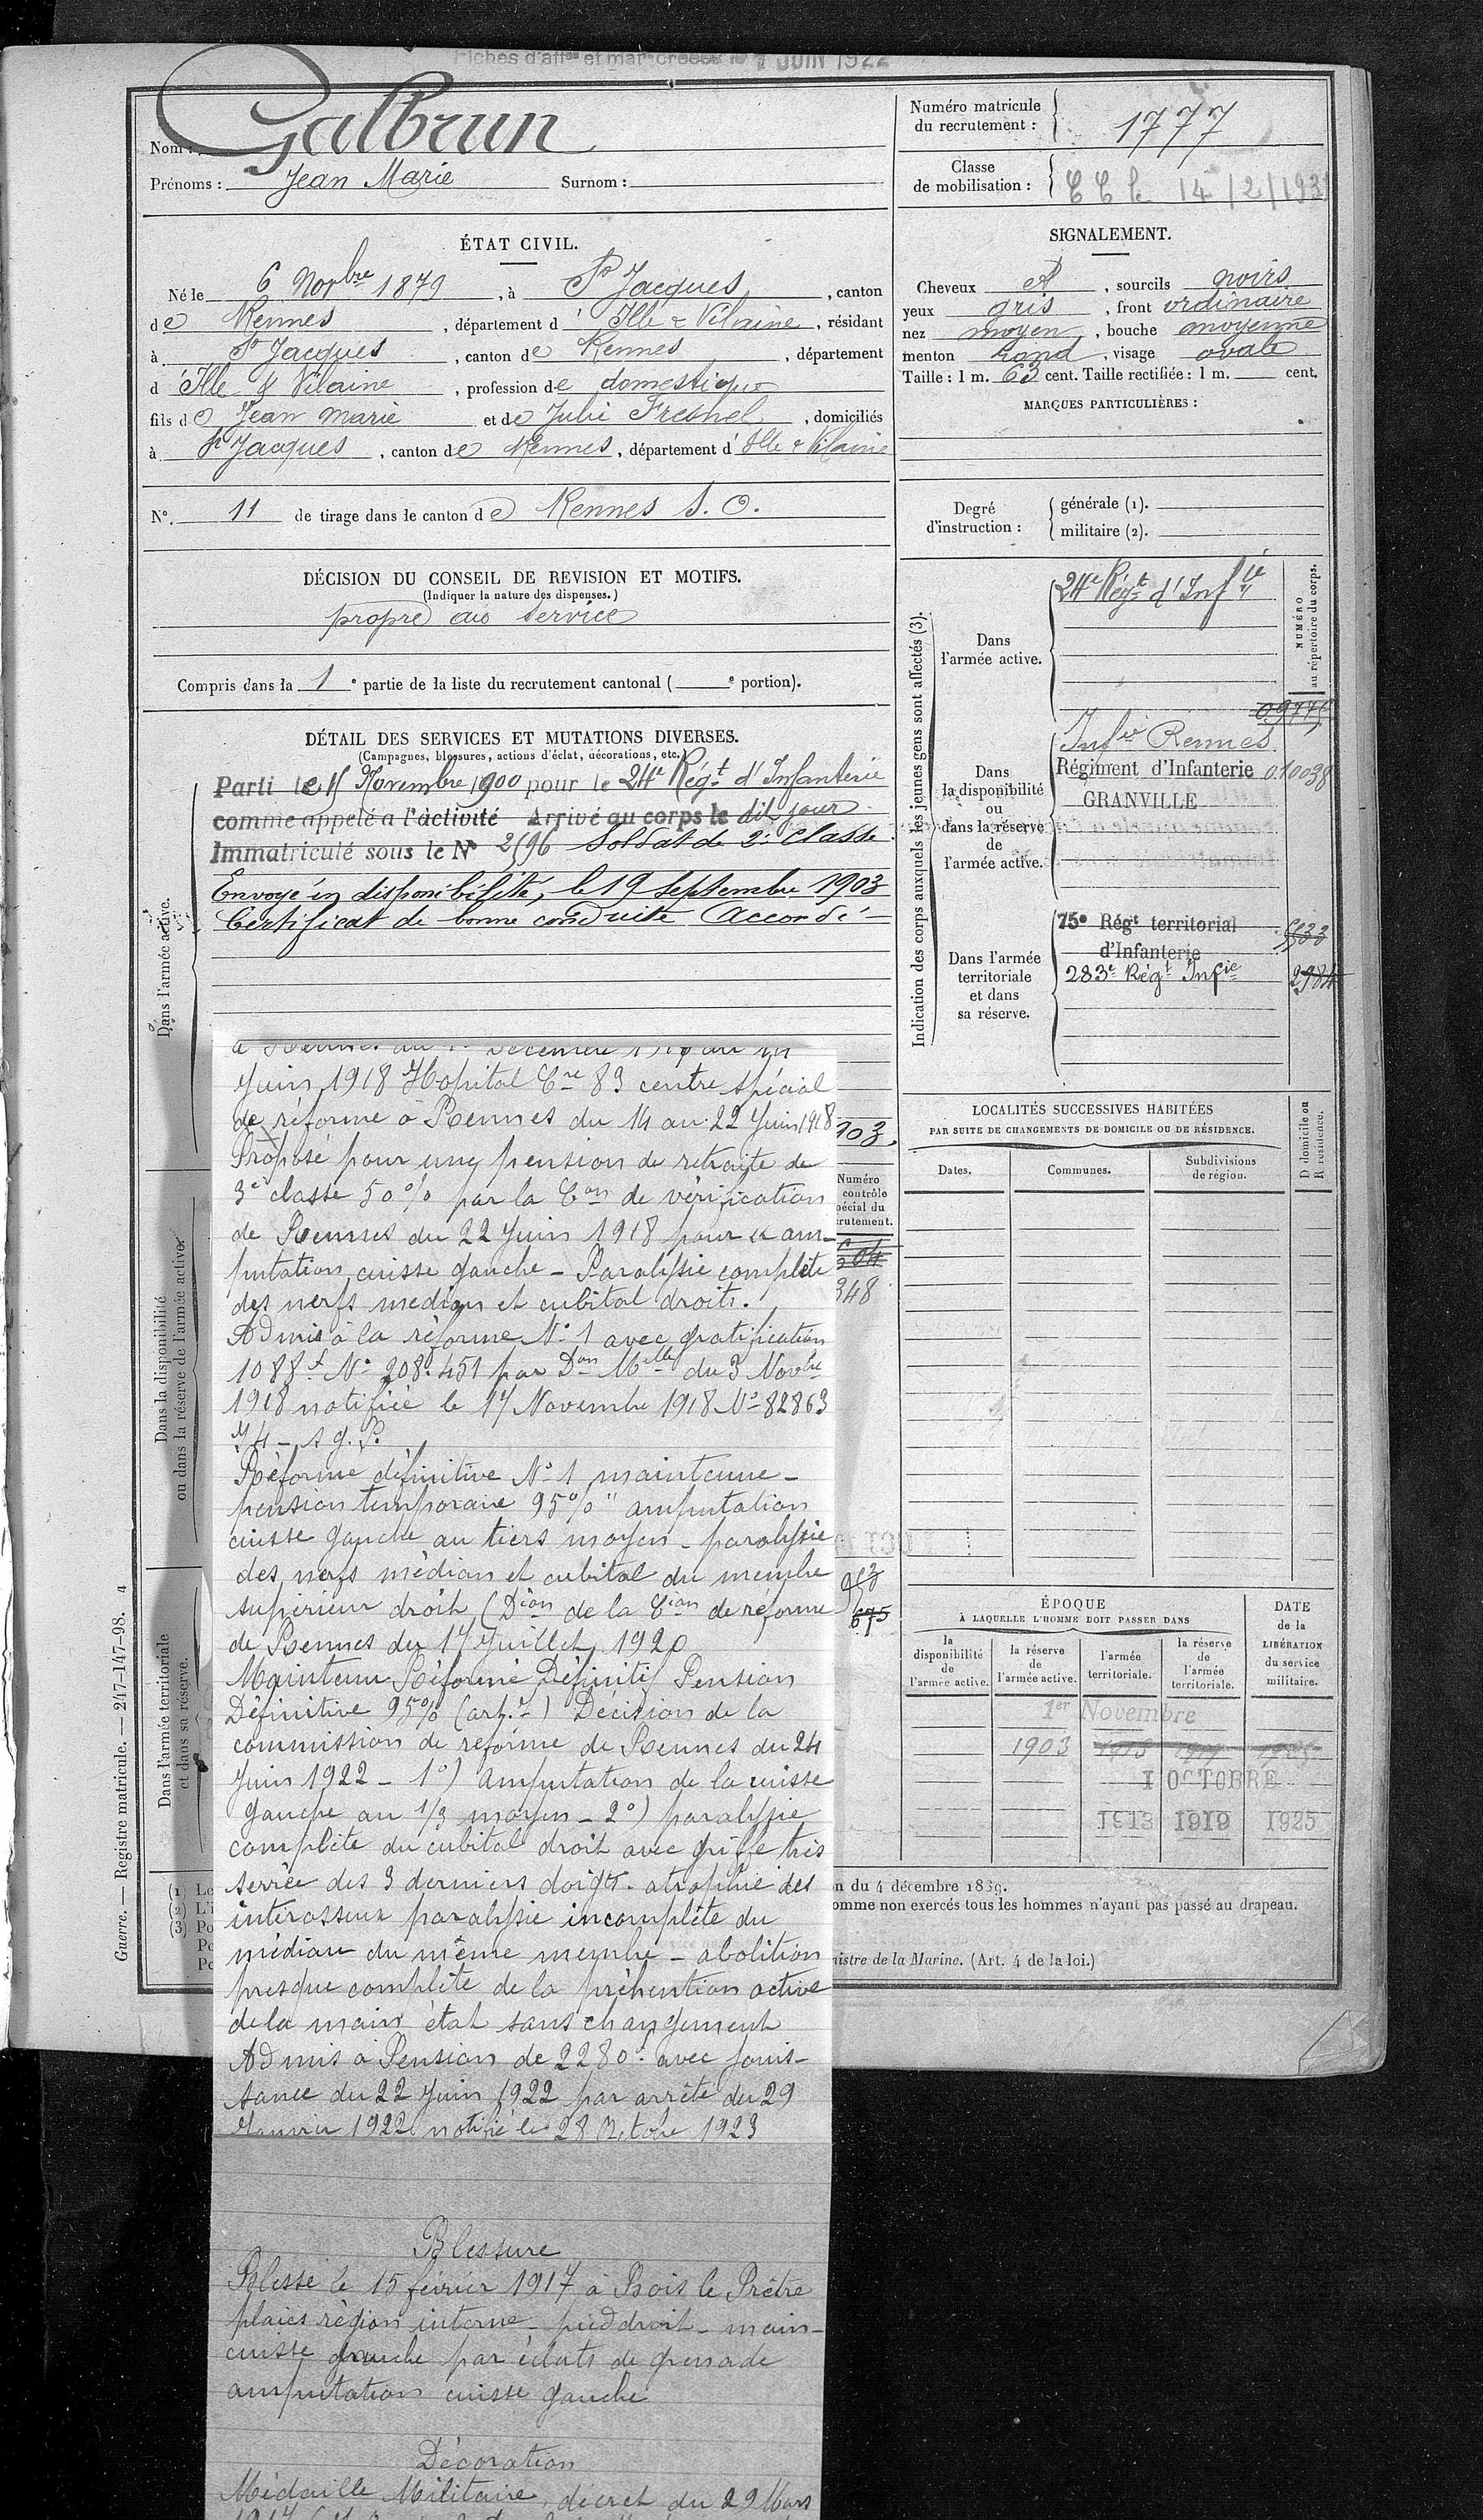 Fiches d'affon et matr créées le 1 JUIN 1922
Nom : Galbrun
Prénoms : Jean Marie Surnom :
Numéro matricule
du recrutement : 1777
Classe
de mobilisation : 14/2/193
ÉTAT CIVIL.
Né le 6 Novbre 1879, à St Jacques, canton
de Rennes, département d' Ille & Vilaine, résidant
à St Jacques, canton de Rennes, département
d' Ille & Vilaine, profession de domestique
fils de Jean Marie et de Julie Fresnel, domiciliés
à St Jacques, canton de Rennes, département d' Ille & Vilaine
N° 11 de tirage dans le canton de Rennes S. O.
SIGNALEMENT.
Cheveux et, sourcils noirs
yeux gris, front ordinaire
nez moyen, bouche moyenne
menton rond, visage ovale
Taille : 1 m. 63 cent. Taille rectifiée : 1 m. cent.
MARQUES PARTICULIÈRES :
Degré
d'instruction :
générale (1).
militaire (2).
DÉCISION DU CONSEIL DE REVISION ET MOTIFS.
(Indiquer la nature des dispenses.)
propre au service
Compris dans la 1e partie de la liste du recrutement cantonal ( e portion).
DÉTAIL DES SERVICES ET MUTATIONS DIVERSES.
(Campagnes, blessures, actions d'éclat, décorations, etc.)
Dans l'armée active.
Parti le 15 Novembre 1900 pour le 24e Régt d'Infanterie
comme appelé à l'activité Arrivé au corps le dit jour
Immatriculé sous le N° 2596 Soldat de 2e classe
Envoyé en disponibilité, le 19 Septembre 1903
Certificat de bonne conduite Accordé
Dans la disponibilité
ou dans la réserve de l'armée active
Dans l'armée territoriale
et dans sa réserve.
Juin 1918 Hopital Cre 83 centre spécial
de réforme à Rennes du 14 au 22 Juin 1918
Proposé pour une pension de retraite de
3e classe 50% par la Con de vérification
de Rennes du 22 Juin 1918 pour « am-
putation cuisse gauche - Paralysie complète
des nerfs median et cubital droits.
Admis à la réforme N° 1 avec gratification
1088f N° 208.451 par Don Melle du 3 Novbre
1918 notifiée le 17 Novembre 1918 N° 82863
Réforme définitive N° 1 maintenue -
pension temporaire 95% " amputation
cuisse gauche au tiers moyen - paralysie
des nerfs médian et cubital du membre
supérieur droit (Dion de la Cion de réforme
de Rennes du 17 Juillet 1920
Maintenu Réformé Définitif Pension
Définitive 95% Décision de la
commission de réforme de Rennes du 24
Juin 1922 - 1°) Amputation de la cuisse
gauche au 1/3 moyen - 2°) paralysie
complète du cubital droit avec griffe très
serrée des 3 derniers doigts - atrophie des
interosseux paralysie incomplète du
médian du même membre - abolition
presque complète de la préhention active
de la main état sans changement
Admis à Pension de 2280f avec jouis-
sance du 22 Juin 1922 par arrêté du 29
Janvier 1922 notifié le 28 Octobre 1923
Blessure
Blessé le 15 février 1917 à Bois le Prêtre
plaies région interne - pied droit - main -
cuisse gauche par éclats de grenade
amputation cuisse gauche
Décoration
Médaille Militaire, décret du 29 Mars
903.
Numéro
contrôle
écial du
rutement.
348
675
Indication des corps auxquels les jeunes gens sont affectés (3).
NUMÉRO
au répertoire du corps.
Dans
l'armée active.
24e Régt d'Infie
Dans
la disponibilité
ou
dans la réserve
de
l'armée active.
09775
Infie Rennes
Régiment d'Infanterie 010038
GRANVILLE
Dans l'armée
territoriale
et dans
sa réserve.
75e Régt territorial
d'Infanterie
283e Régt Infie
LOCALITÉS SUCCESSIVES HABITÉES
PAR SUITE DE CHANGEMENTS DE DOMICILE OU DE RÉSIDENCE.
Dates.
Communes.
Subdivisions
de région.
D domicile ou
R résidence.
ÉPOQUE
À LAQUELLE L'HOMME DOIT PASSER DANS
DATE
de la
LIBÉRATION
du service
militaire.
la
disponibilité
de
l'armée active.
la réserve
de
l'armée active.
l'armée
territoriale.
la réserve
de
l'armée
territoriale.
1er Novembre
1903
1 OCTOBRE
1913 1919 1925
(1) Le
(2) L'i
(3) Po
Po
Po
n du 4 décembre 1889.
omme non exercés tous les hommes n'ayant pas passé au drapeau.
nistre de la Marine. (Art. 4 de la loi.)
Guerre. — Registre matricule. — 247-147-98. 4